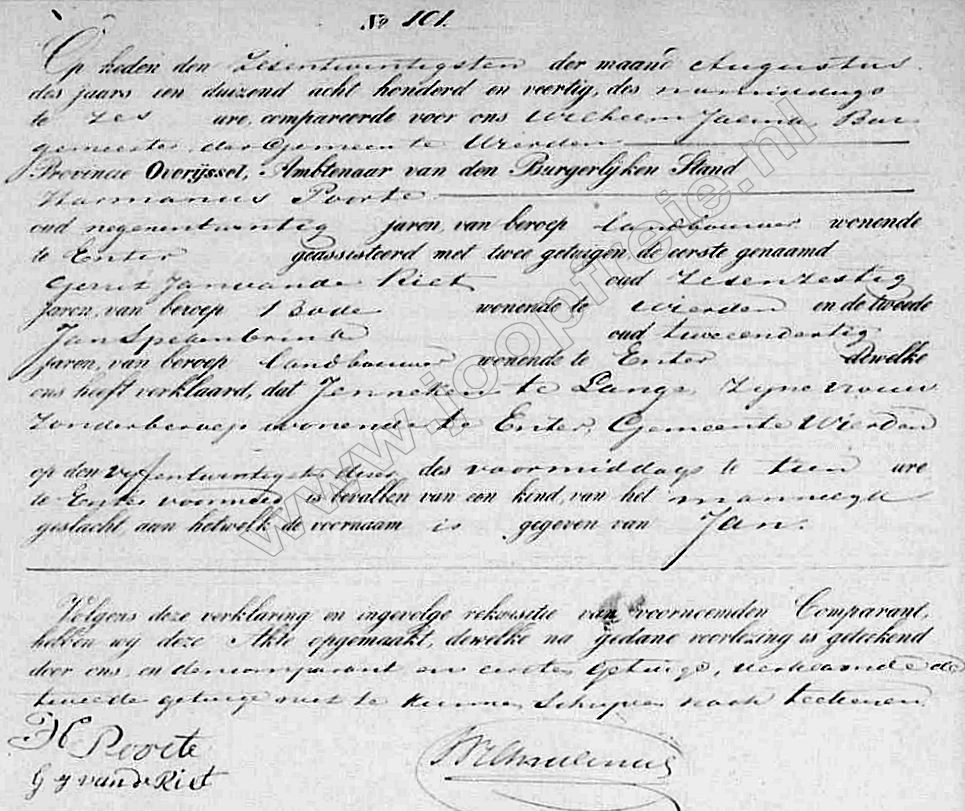 No 101.
Op heden den Zesentwintigsten der maand Augustus
des jaars een duizend acht honderd en veertig, des namiddags
te zes ure, compareerde voor ons Willem Jalink, Bur
gemeester der Gemeente Wierden
Provincie Overijssel, Ambtenaar van den Burgerlijken Stand
Harmanus Poorte
oud negenentwintig jaren, van beroep landbouwer wonende
te Enter geassisteerd met twee getuigen de eerste genaamd
Gerrit Jan van de Riet oud Zesenzestig
Jaren, van beroep Bode wonende te Wierden en de tweede
Jan oud tweeendertig
Jaren, van beroep landbouwer wonende te Enter dewelke
ons heeft verklaard, dat Jenneken te Lange, zyne vrouw
Zonder beroep wonende te Enter, Gemeente Wierden
op den vyfentwintigsten dezer des voormiddags te tien ure
te Enter voornoemd is bevallen van een kind, van het mannelyk
geslacht, aan hetwelk de voornaam is gegeven van Jan.
Volgens deze verklaring en ingevolge rekwisitie van voornoemden Comparant,
hebben wij deze Akte opgemaakt, dewelke na gedane voorlezing is geteekend
door ons, en den comparant en eerste getuige, verklaarde de
tweede getuige niet te kunnen Schryven noch teekenen
H Poorte
G J van de Riet
www.joopfreie.nl